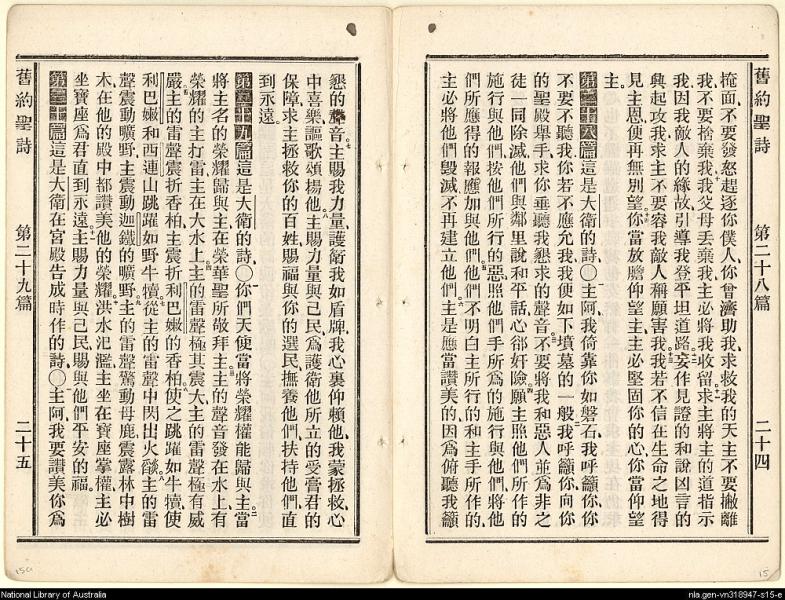 舊約聖詩　第二十八篇　二十四
掩面、不要發怒趕逐你僕人、你曾濟助我、求救我的天主不要撇離
我、不要捨棄我、我父母丟棄我、主必將我收留、求主將主的道指示
我、因我敵人的緣故、引導我登平坦道路、妄作見證的和說凶言的
興起攻我、求主不要容我敵人稱願害我、我若不信在生命之地得
見主恩、便再無別望、你當放膽仰望主、主必堅固你的心、你當仰望
主。
第二十八篇 這是大衛的詩、〇主阿、我倚靠你如磐石、我呼籲你、你
不要不聽我、你若不應允我、我便如下墳墓的一般、我呼籲你、向你
的聖殿舉手、求你垂聽我懇求的聲音、不要將我和惡人並為非之
徒一同除滅、他們與鄰里說和平話、心卻奸險、願主照他們所作的
施行與他們、按他們所行的惡、照他們手所為的、施行與他們、將他
們所應得的報應加與他們、他們不明白主所行的、和主手所作的、
主必將他們毀滅、不再建立他們、主是應當讚美的、因為俯聽我籲
懇的聲音、主賜我力量、護衛我如盾牌、我心裏仰賴他、我蒙拯救、心
中喜樂、謳歌頌揚他、主賜力量與己民、為護衛他所立的受膏君的
保障、求主拯救你的百姓、賜福與你的選民、撫養他們、扶持他們、直
到永遠。
第二十九篇 這是大衛的詩、〇你們天使、當將榮耀權能歸與主、當
將主名的榮耀歸與主、在榮華聖所敬拜主、主的聲音發在水上、有
榮耀的主打雷、主在大水上、主的雷聲極其震大、主的雷聲極有威
嚴、主的雷聲震折香柏、主震折利巴嫩的香柏、使之跳躍如牛犢、使
利巴嫩和西連山跳躍如野牛犢、從主的雷聲中閃出火燄、主的雷
聲震動曠野、主震動迦鐵的曠野、主的雷聲驚動母鹿、震露林中樹
木、在他的殿中都讚美他的榮耀、洪水氾濫、主坐在寶座掌權、主必
坐寶座為君、直到永遠、主賜力量與己民、賜與他們平安的福。
第三十篇 這是大衛在宮殿告成時作的詩、〇主阿、我要讚美你、為
舊約聖詩　第二十九篇　二十五
15a
15
National Library of Australia
nla.gen-vn318947-s15-e